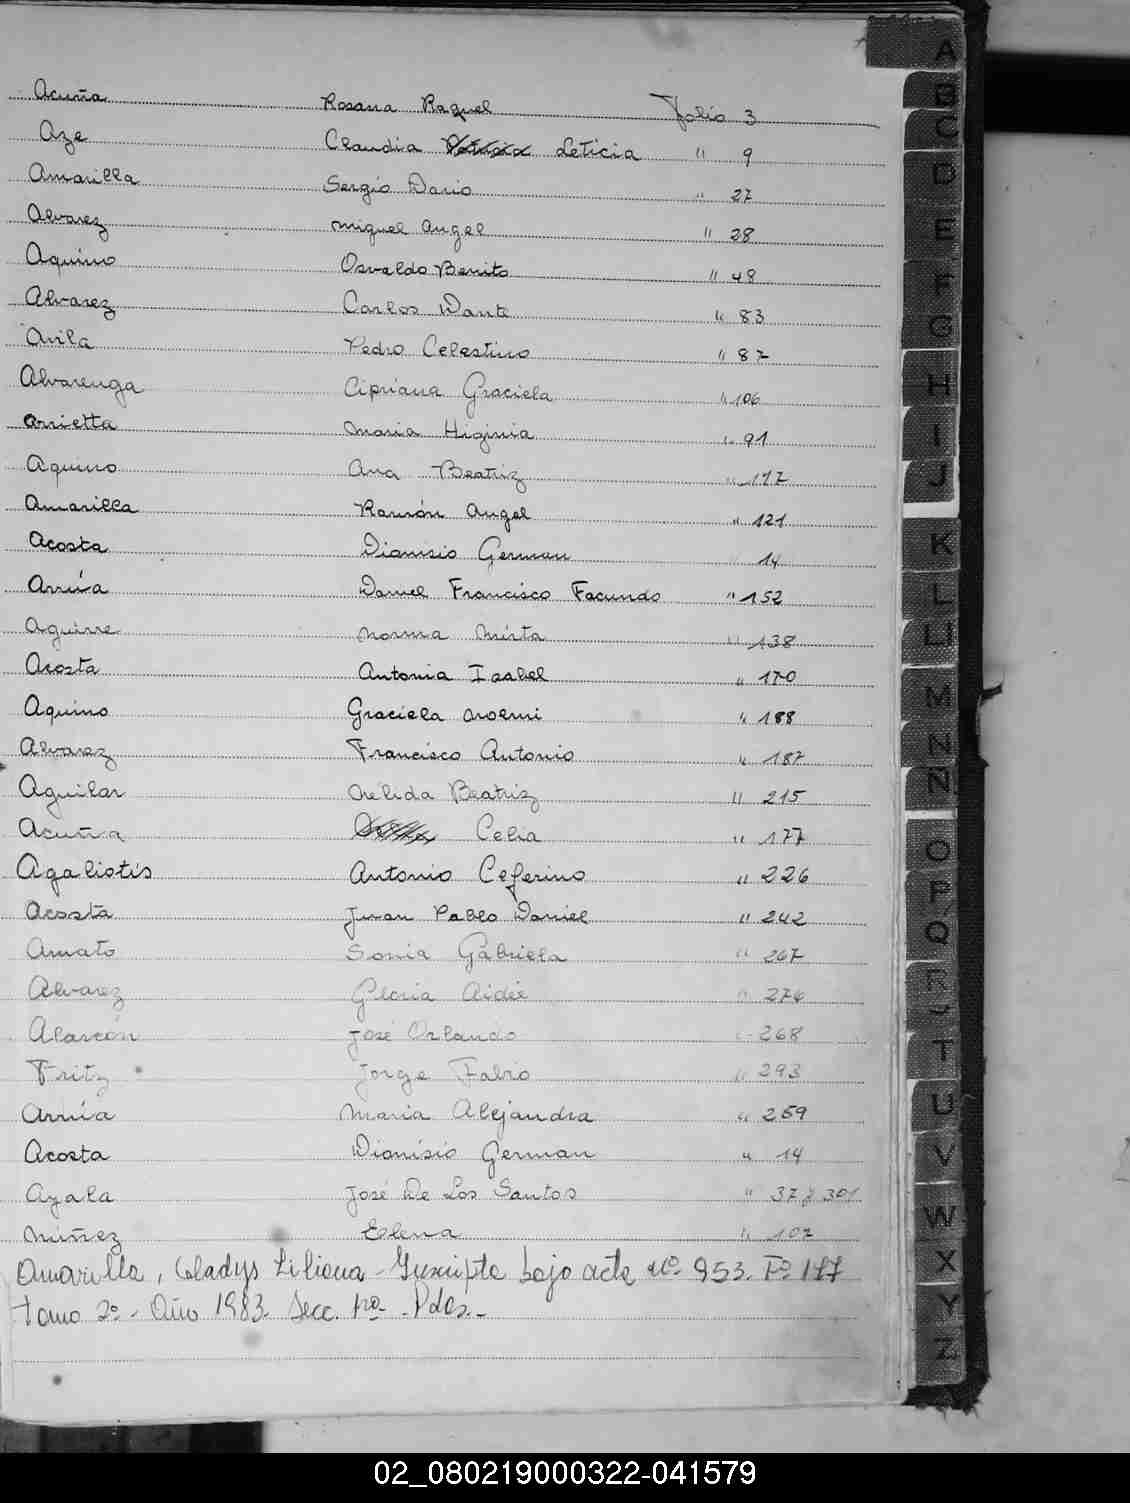 Acuña Rosana Raquel Folio 3
Aze Claudia Leticia " 9
Amarilla Sergio Dario " 27
Alvarez Miguel Angel " 28
Aquino Osvaldo Benito " 48
Alvarez Carlos Dante " 83
Avila Pedro Celestino " 87
Alvarenga Cipriana Graciela " 106
Arrietta Maria Higinia " 91
Aquino Ana Beatriz " 117
Amarilla Ramón Angel " 121
Acosta Dionisio German " 14
Arrúa Daniel Francisco Facundo " 152
Aguirre Norma Mirta " 138
Acosta Antonia Isabel " 170
Aquino Graciela Noemi " 188
Alvarez Francisco Antonio " 187
Aguilar Nélida Beatriz " 215
Acuña Celia " 177
Agaliotis Antonio Ceferino " 226
Acosta Juan Pablo Daniel " 242
Amato Sonia Gabriela " 267
Alvarez Gloria Aidée " 276
Alarcón José Orlando " 268
Fritz Jorge Fabio " 293
Arrúa Maria Alejandra " 259
Acosta Dionisio German " 14
Ayala José De Los Santos " 37 y 301
Núñez Elena " 107
Amarilla, Gladys Liliana - Inscripta bajo acta Nº 953. Fº 177
tomo 2º - Año 1983. Secc. 1ra - Pdas. -
A
B
C
D
E
F
G
H
I
J
K
L
LL
M
N
Ñ
O
P
Q
R
T
U
V
W
X
Y
Z
02_080219000322-041579